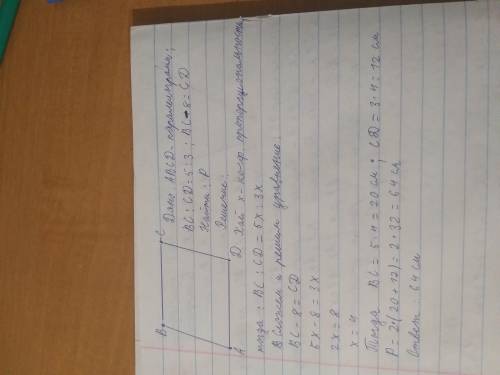 B C Дано: ABCD - параллелограмм;
BC : CD = 5 : 3; BC - 8 = CD
Найти: P
Решение:
A D Хай x - коэф. пропорциональности,
тогда: BC : CD = 5x : 3x
и решим уравнение:
BC - 8 = CD
5x - 8 = 3x
2x = 8
x = 4
Тогда BC = 5 · 4 = 20 см; CD = 3 · 4 = 12 см
P = 2 · (20 + 12) = 2 · 32 = 64 см
Ответ: 64 см